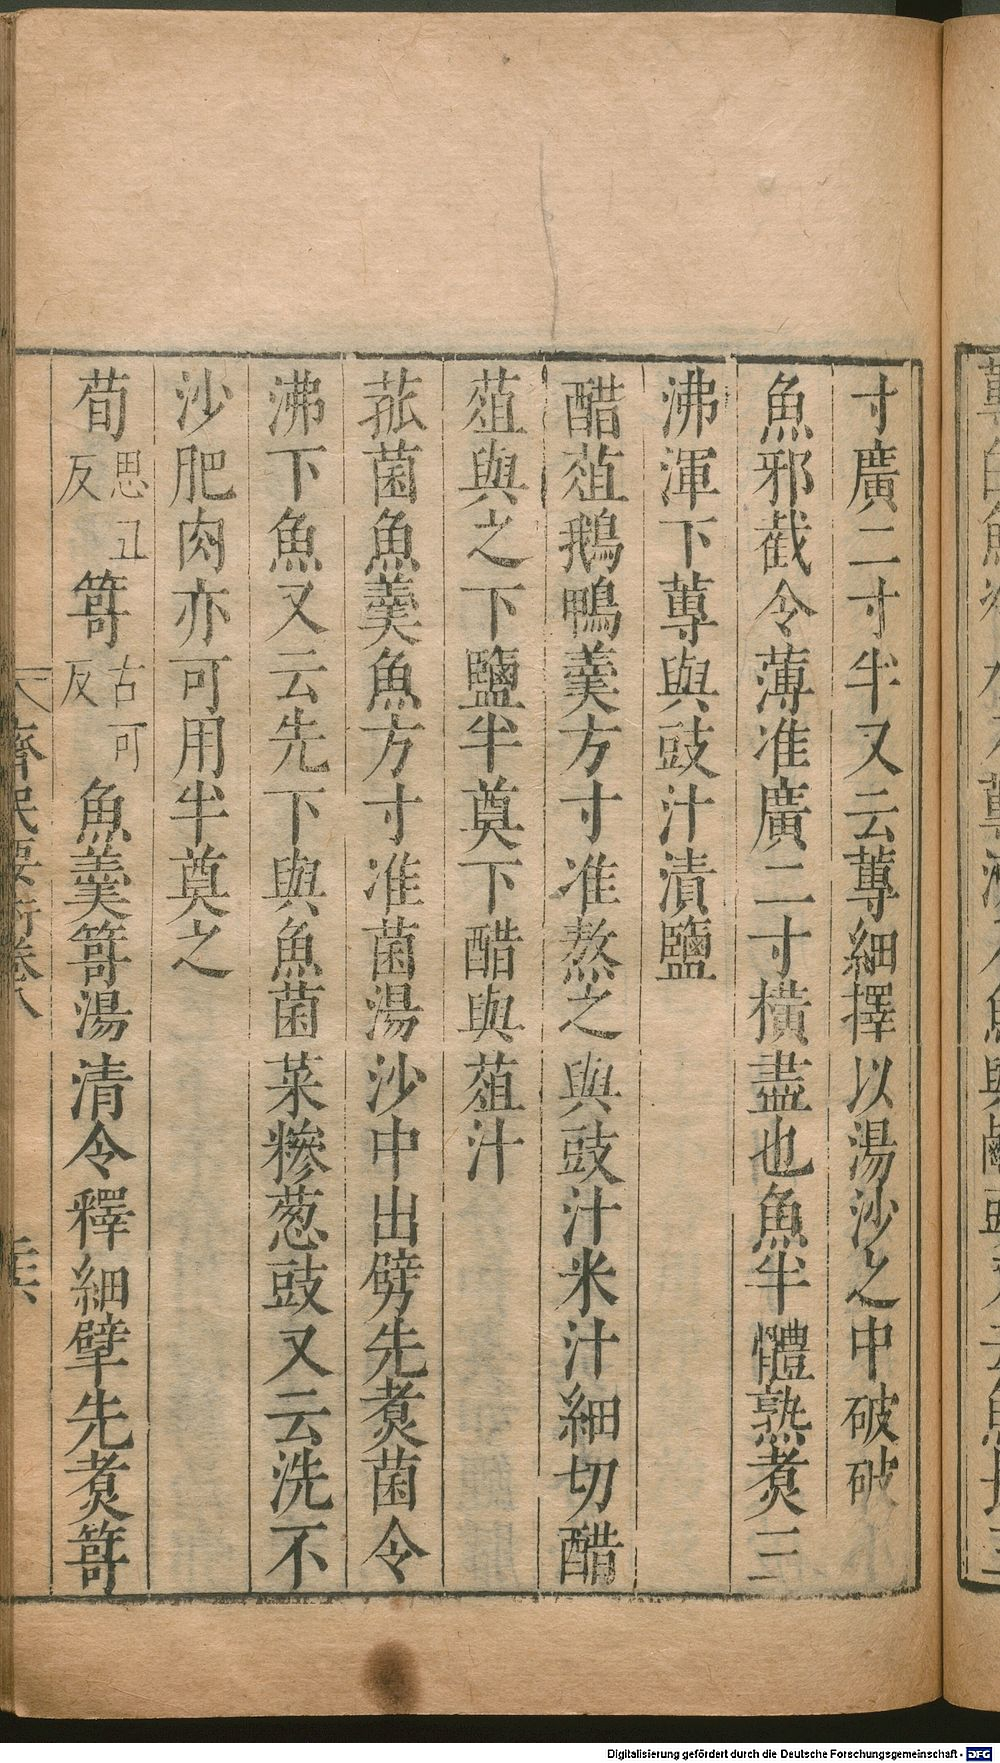 寸廣二寸半又云蓴細擇以湯沙之中破破
魚邪截令薄准廣二寸橫盡也魚半體熟煮三
沸渾下蓴與豉汁漬鹽
醋葅鵝鴨羹方寸准熬之與豉汁米汁細切醋
葅與之下鹽半奠下醋與葅汁
菰菌魚羹魚方寸准菌湯沙中出劈先煮菌令
沸下魚又云先下與魚菌菜糝葱豉又云洗不
沙肥肉亦可用半奠之
荀思丑反笴古可反魚羹笴湯清令釋細擘先煮笴
齊民要術卷八
Digitalisierung gefördert durch die Deutsche Forschungsgemeinschaft - DFG